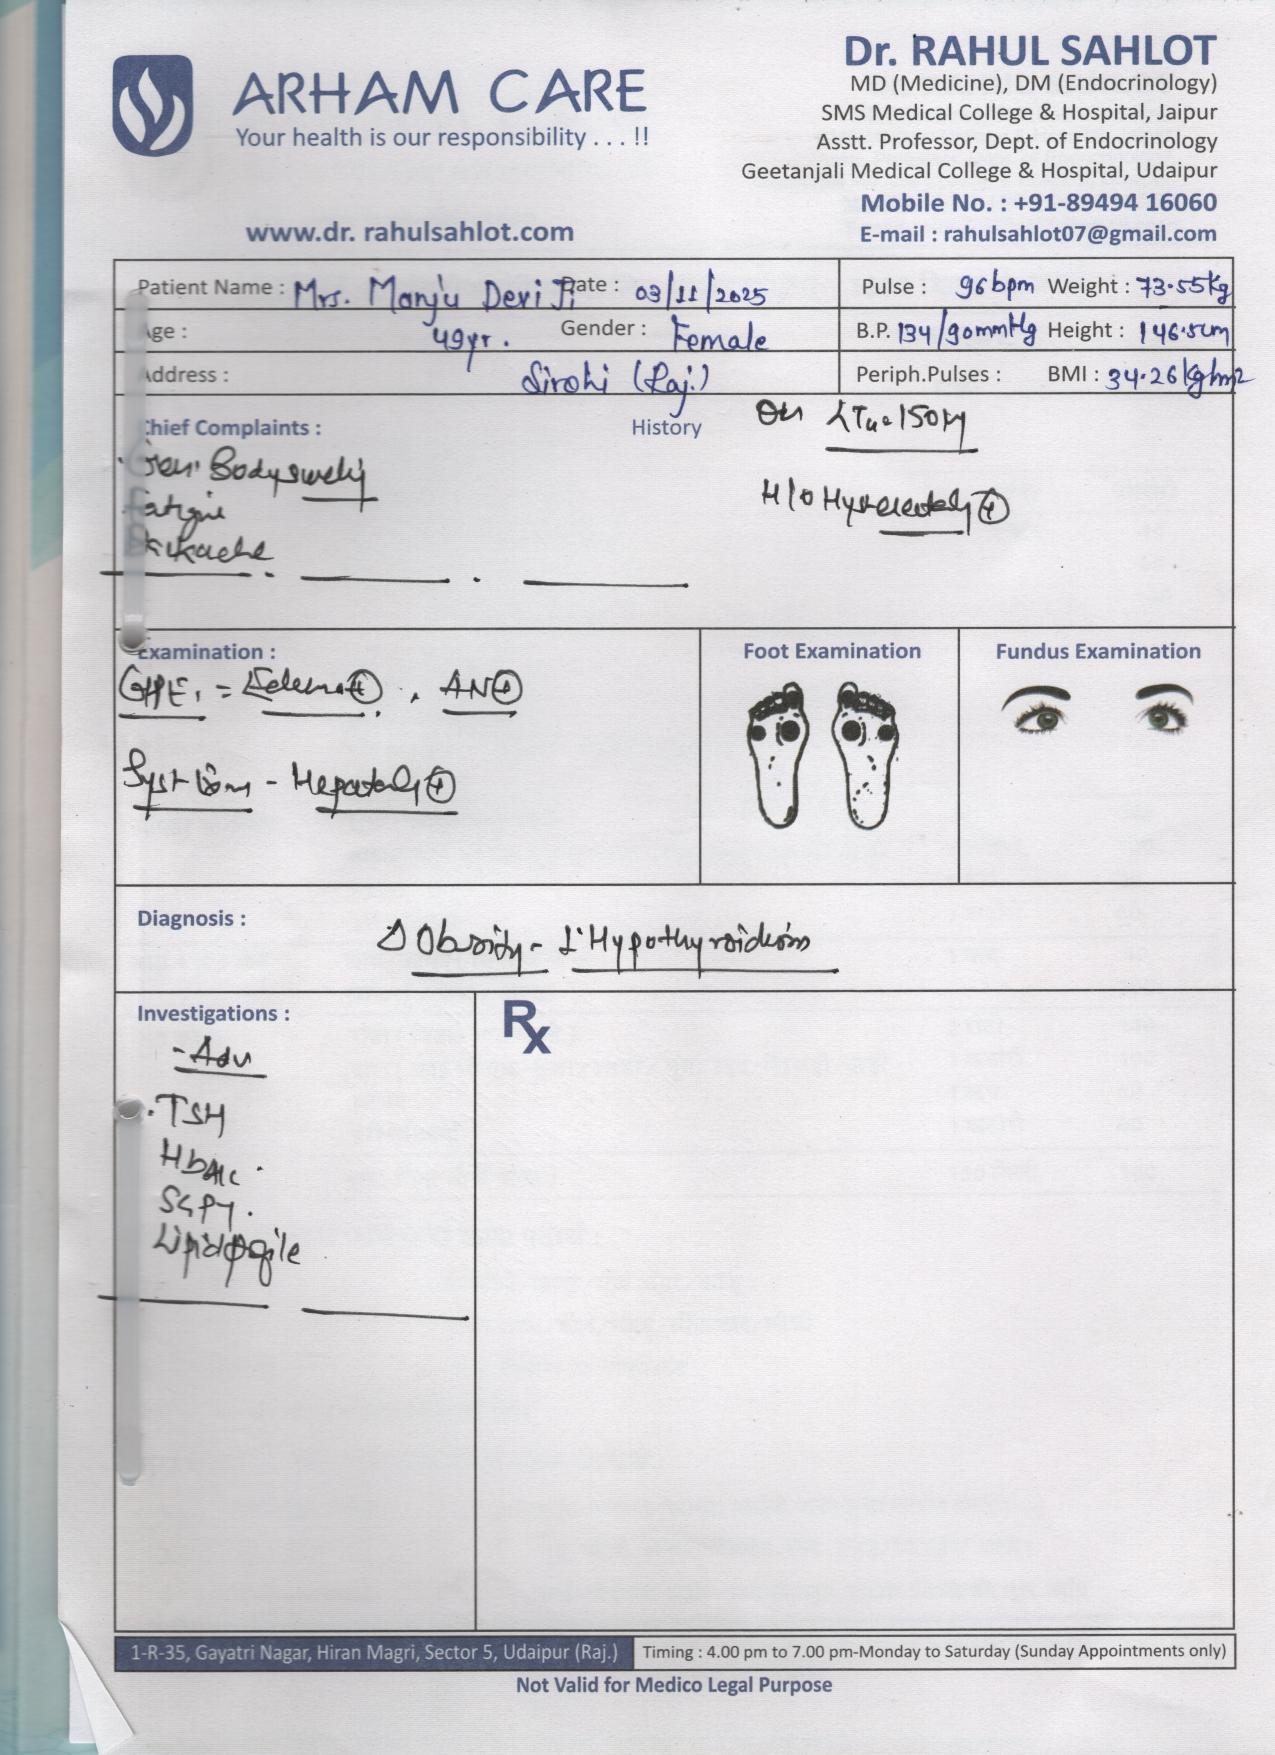 Dr. RAHUL SAHLOT
MD (Medicine), DM (Endocrinology)
SMS Medical College & Hospital, Jaipur
Asstt. Professor, Dept. of Endocrinology
Geetanjali Medical College & Hospital, Udaipur
Mobile No. : +91-89494 16060
E-mail : rahulsahlot07@gmail.com
ARHAM CARE
Your health is our responsibility . . . !!
www.dr. rahulsahlot.com
Patient Name : Mrs. Manju Devi Ji Date : 03/11/2025 Pulse : 96bpm Weight : 73.55kg
Age : 49yr. Gender : Female B.P. 134/90mmHg Height : 146.5cm
Address : Sirohi (Raj.) Periph.Pulses : BMI : 34.26kg/m2
Chief Complaints : History
150
Body
Fatigue
H/O
Examination : Foot Examination Fundus Examination
GPE, = Edema + , AN +
Diagnosis :
Δ Obesity - Hypothyroidism
Investigations : Rx
- Adv
. TSH
HbA1c .
SGPT .
Lipid profile
1-R-35, Gayatri Nagar, Hiran Magri, Sector 5, Udaipur (Raj.) Timing : 4.00 pm to 7.00 pm-Monday to Saturday (Sunday Appointments only)
Not Valid for Medico Legal Purpose